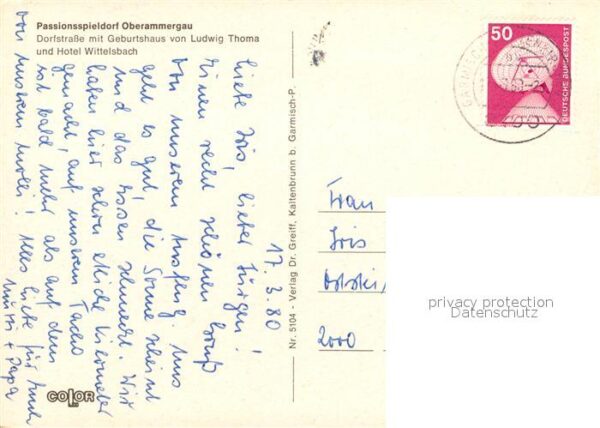 Passionsspieldorf Oberammergau
Dorfstraße mit Geburtshaus von Ludwig Thoma
und Hotel Wittelsbach
17.3.80
Liebe Iris, lieber Jürgen!
Einen recht schönen Gruß
von unserem Ausflug. Uns
geht es gut, die Sonne scheint
und das Essen schmeckt. Wir
haben hier schon etliche Kilometer
gemacht, auf unserem Tacho
ist bald mehr als auf dem
von unserem Molli! Alles Liebe für Euch
Mutti + Papa
Nr. 5104 - Verlag Dr. Greiff, Kaltenbrunn b. Garmisch-P.
COLOR
50
DEUTSCHE BUNDESPOST
GARMISCH-PARTENKIR
Frau
Iris
2000
privacy protection
Datenschutz